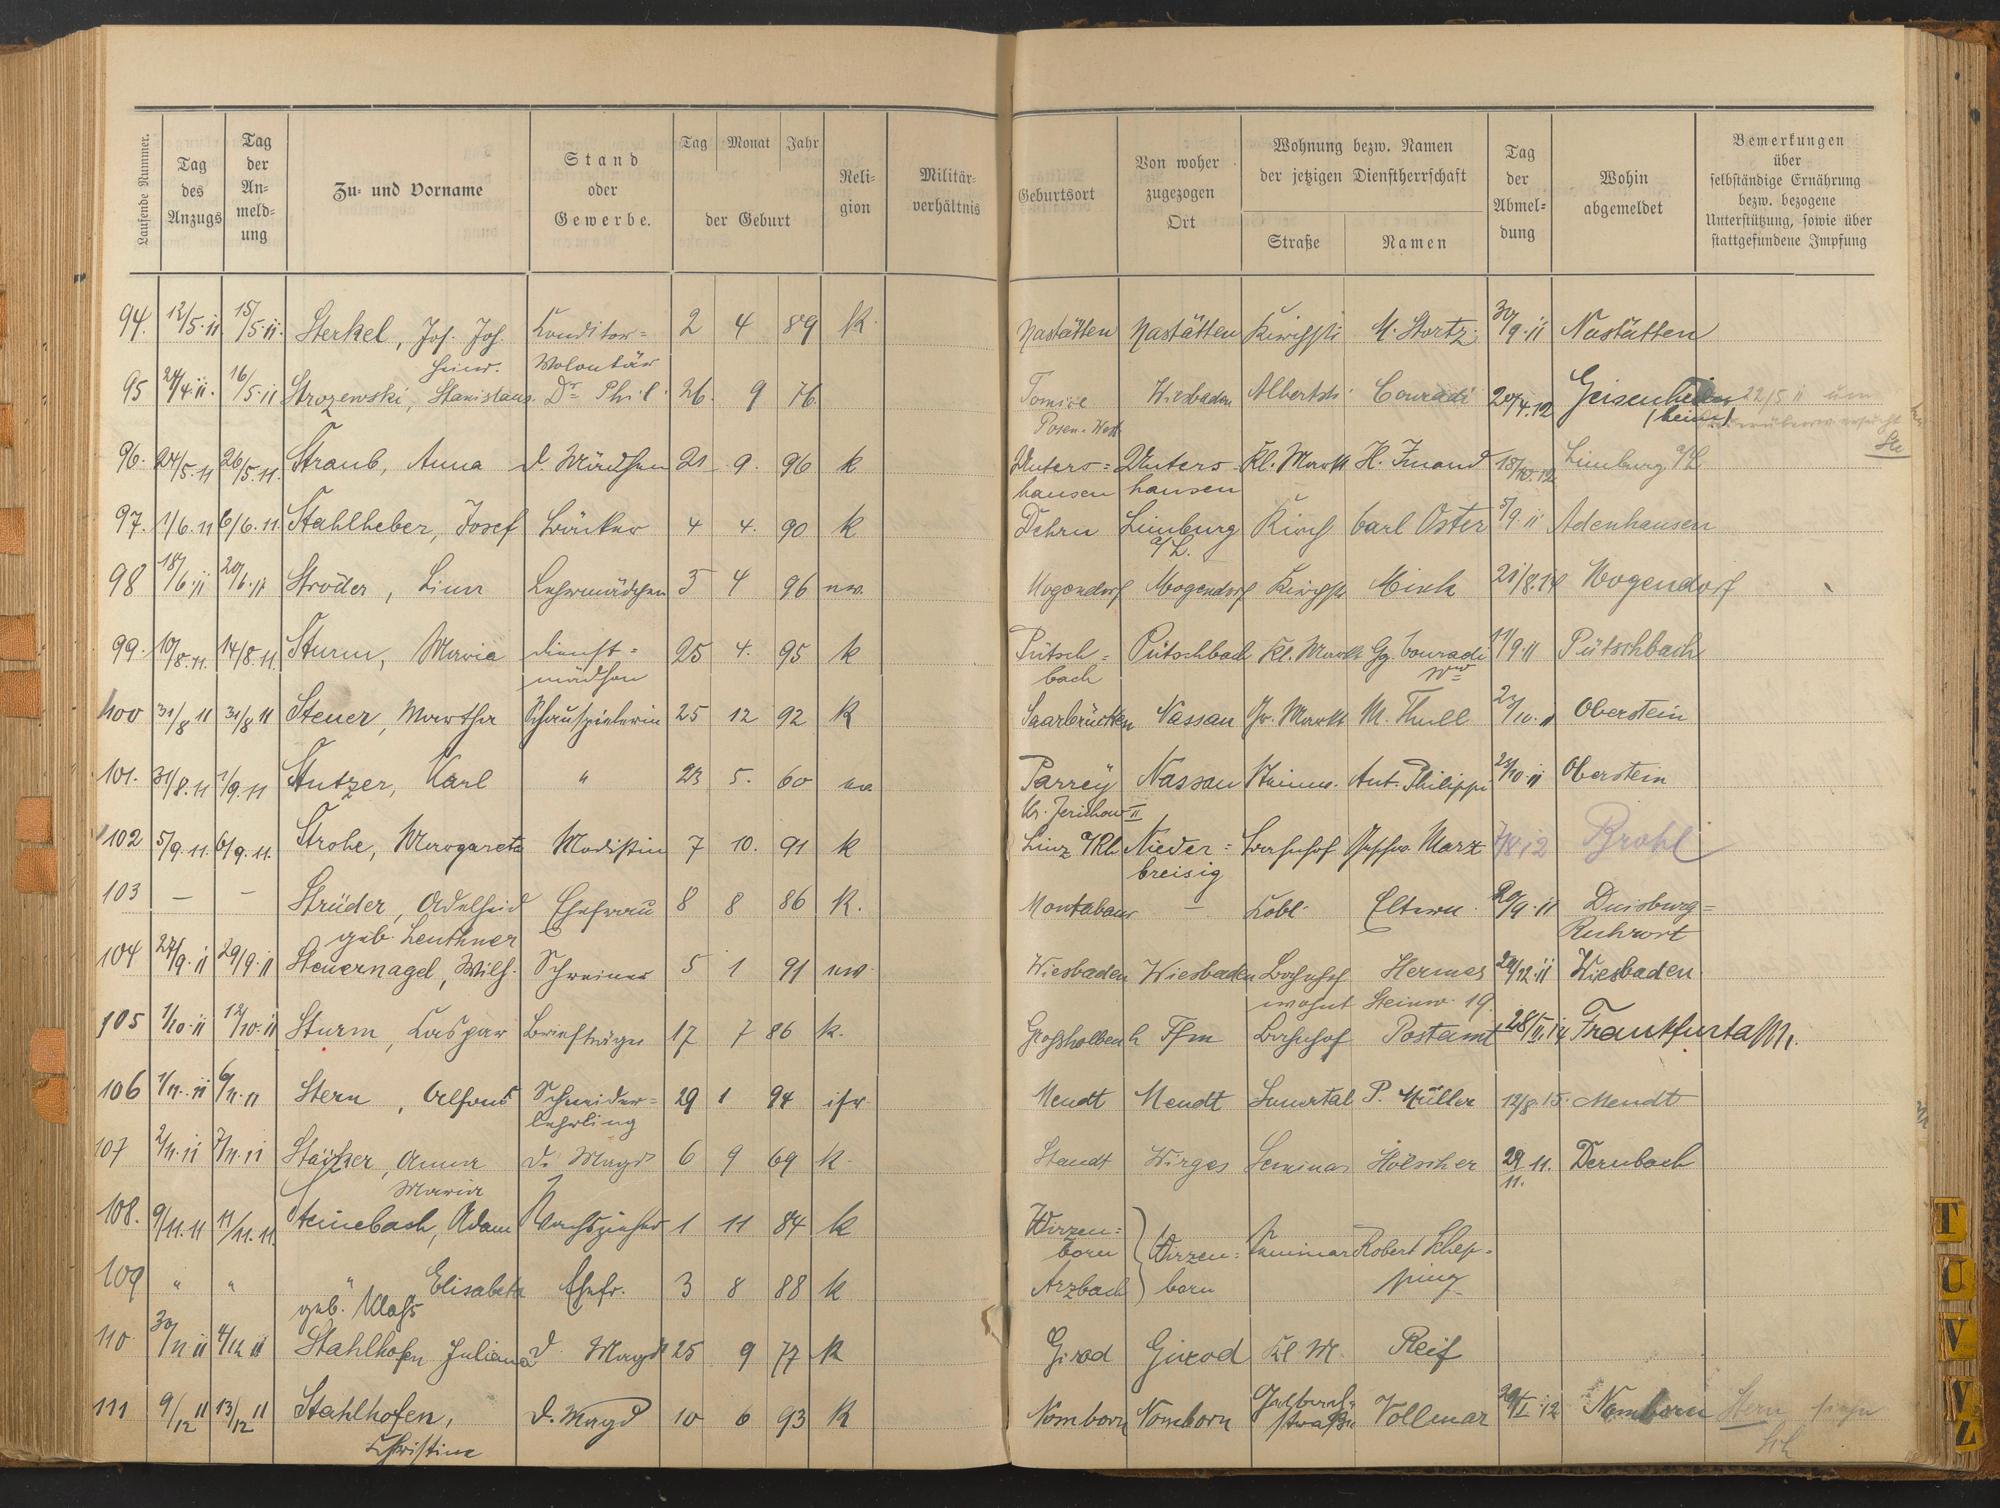 Laufende Nummer.
Tag des Anzugs
Tag der An- meld- ung
Zu- und Vorname
Stand oder Gewerbe.
Tag Monat Jahr
der Geburt
Reli- gion
Militär- verhältnis
Geburtsort
Von woher zugezogen Ort
Wohnung bezw. Namen der jetzigen Dienstherrschaft
Straße Namen
Tag der Abmel- dung
Wohin abgemeldet
Bemerkungen über selbständige Ernährung bezw. bezogene Unterstützung, sowie über stattgefundene Impfung
94. 12/5.11 15/5.11. Sterkel, Joh. Jos. Konditor= 2 4 89 K. Nastätten Nastätten Kirchstr M. Stortz. 30/9.11 Nastätten
Heinr. Volontär
95 24/4.11. 16/5.11 Strozewski, Stanislaus. Dr Phil. 26. 9 76. Wiesbaden Albertstr. Conradi 20/4.12 Geisenheim 22/5 11
Posen-West
96. 24/5.11 26/5.11. Straub, Anna d. Mädchen 21 9. 96 k Unters= Unters- Kl. Markt H. Imand 18/10.12 Limburg a/L
hausen hausen
97. 1/6.11 6/6.11. Stahlheber, Josef Bäcker 4 4. 90 k Dehrn Limburg Kirch Carl Oster 5/9.11 Adenhausen
a/L.
98 18/6.11 20/6.11 Ströder, Lina Lehrmädchen 3 4 96 ev. Mogendorf Mogendorf Kirchstr 21/8.14 Mogendorf
99. 10/8.11. 14/8.11. Sturm, Maria Dienst= 25 4. 95 k Pütsch= Pütschbach Kl. Markt Gg. Conradi 11/9 11 Pütschbach
mädchen bach Ww
100 31/8 11 31/8 11 Steuer, Martha Schauspielerin 25 12 92 K Saarbrücken Nassau Gr. Markt M. Thull 23/10.11 Oberstein
101. 31/8.11 1/9.11 Stutzer, Karl " 23 5. 60 ev. Parrey Nassau Steinw. Ant. Philippi 23/10.11 Oberstein
Kr. Jerichow II
102 5/9.11. 6/9.11. Strohe, Margareta Modistin 7 10. 91 k Linz a/Rh Nieder= Bahnhof Geschw. Marx 7/8 12 Brohl
breisig
103 — — Strüder, Adelheid Ehefrau 8 8 86 K. Montabaur — Kobl. Eltern. 20/9.11 Duisburg=
geb. Leuthner Ruhrort
104 27/9.11 29/9.11 Steuernagel, Wilh. Schreiner 5 1 91 ev. Wiesbaden Wiesbaden Bahnhof Hermes 20/12.11 Wiesbaden.
wohnt Steinw. 19.
105 1/10.11 12/10.11 Sturm, Caspar Briefträger 17 7 86 k. Großholbach Ffm Bahnhof Postamt 28/II.14 Frankfurt a M.
106 1/11.11 6/11.11 Stern, Alfons Schneider= 29 1 94 isr. Mendt Mendt Sauertal P. Müller 12/8.15. Mendt
lehrling
107 2/11.11 7/11.11 Anna d. Magd 6 9 69 k. Standt Wirges Seminar Hölscher 29 11. Dernbach
Maria 11.
108. 9/11.11 11/11.11. Steinebach, Adam Wachszieher 1 11 84 k Wirzen=
born } Wirzen= Seminar Robert Schep-
109 " " " Elisabeta Ehefr. 3 8 88 k Arzbach born ping
geb. Klaß
110 30/11 11 4/12 11 Stahlhofen Juliana d. Magd 25 9 77 K Girod Girod Kl M. Reif
111 9/12 11 13/12 11 Stahlhofen, d. Magd 10 6 93 K Nomborn Nomborn Vollmar 20/I 12 Nomborn Stern
Christine
T
U
V
V
Z